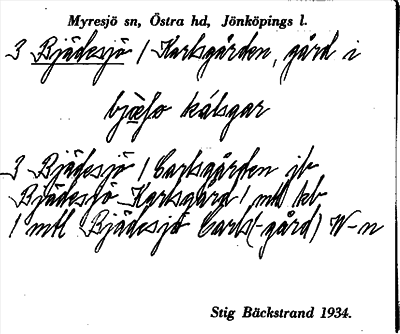 Myresjö sn, Östra hd, Jönköpings l.
3 Bjädesjö / Karlsgården, gård i
bjæsʃo kálsgar
3 Bjädesjö / Carlsgården jb
Bjädesjö Karlsgård 1 mtl kb
1 mtl Bjädesjö Carls(-gård) W-n
Stig Bäckstrand 1934.